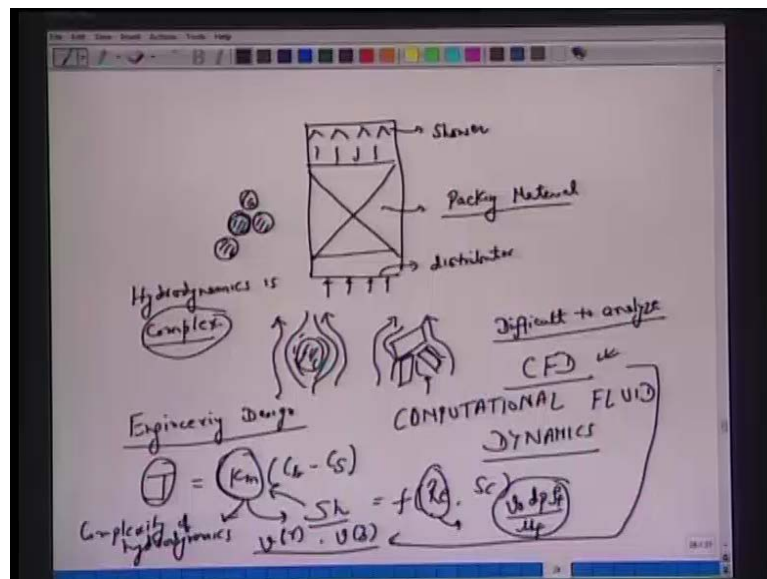 File Edit View Insert Actions Tools Help
Shower
Packing Material
distributor
Hydrodynamics is
Complex.
Difficult to analyze
CFD
COMPUTATIONAL FLUID
DYNAMICS
Engineering Design
J = Km (Cb - Cs)
Sh = f(Re, Sc)
v0 dp ρf
μf
Complexity of
hydrodynamics
v(r), v(z)